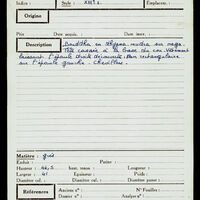 Indice : Style : XIIIe s. Emplacem. :
Origine
Prix Date acquis. Date inv. :
Description Bouddha en dhyana mudra sur naga.
Tête cassée à la base du cou. Vêtement
laissant l'épaule droite découverte. Pan rectangulaire
sur l'épaule gauche.
Matière : grès
Enduit : Patine :
Hauteur : 44,5 haut. tenon : Longueur :
Largeur : 41 Epaisseur : Poids :
Diamètre col. : Diamètre panse :
Références Anciens n° : N° Fouilles :
Dossier n° : Analyse n° :